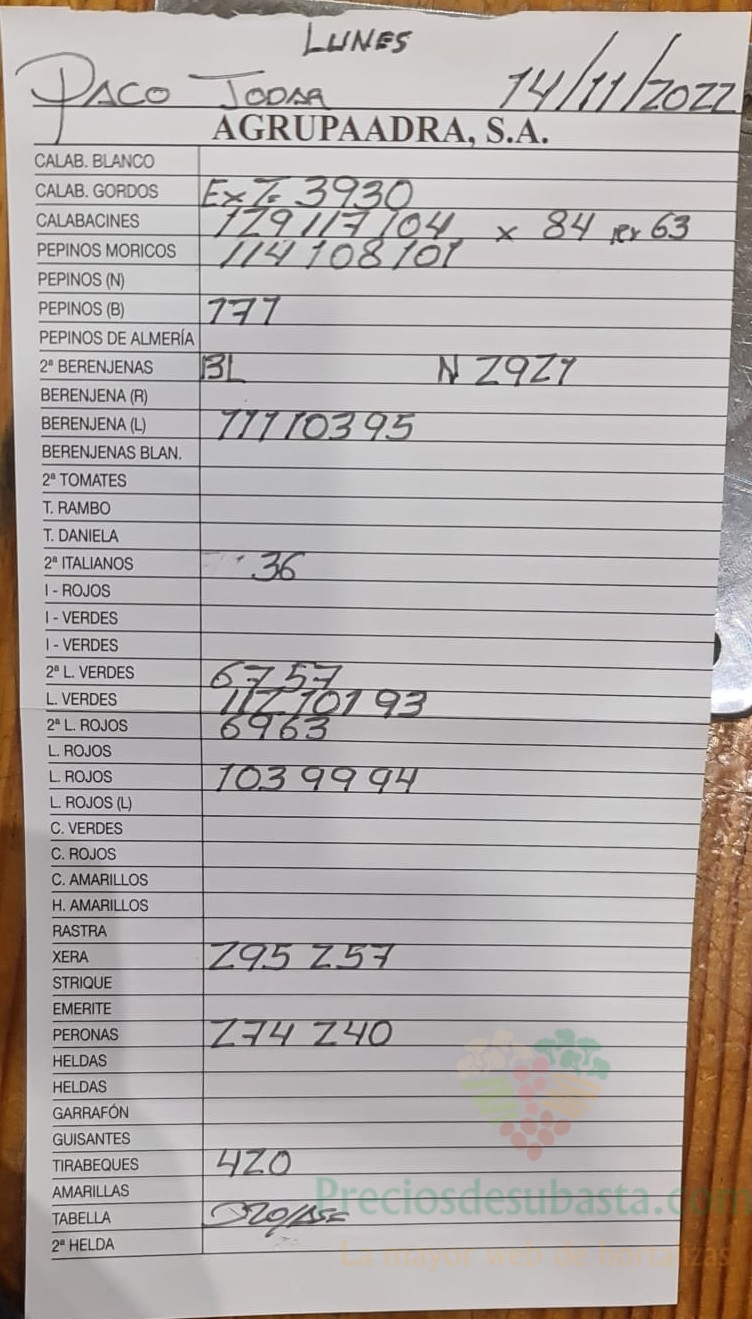 LUNES
PACO JODAR 14/11/2022
AGRUPAADRA, S.A.
CALAB. BLANCO
CALAB. GORDOS Ex 3930
CALABACINES 129 117 104 x 84 rex 63
PEPINOS MORICOS 114 108 101
PEPINOS (N)
PEPINOS (B) 171
PEPINOS DE ALMERÍA
2ª BERENJENAS BL N 2921
BERENJENA (R)
BERENJENA (L) 111 103 95
BERENJENAS BLAN.
2ª TOMATES
T. RAMBO
T. DANIELA
2ª ITALIANOS 36
I - ROJOS
I - VERDES
I - VERDES
2ª L. VERDES 67 57
L. VERDES 112 101 93
2ª L. ROJOS 69 63
L. ROJOS
L. ROJOS 103 99 94
L. ROJOS (L)
C. VERDES
C. ROJOS
C. AMARILLOS
H. AMARILLOS
RASTRA
XERA 295 257
STRIQUE
EMERITE
PERONAS 274 240
HELDAS
HELDAS
GARRAFÓN
GUISANTES
TIRABEQUES 420
AMARILLAS
Preciosdesubasta.com
TABELLA
La mayor web de hortalizas
2ª HELDA